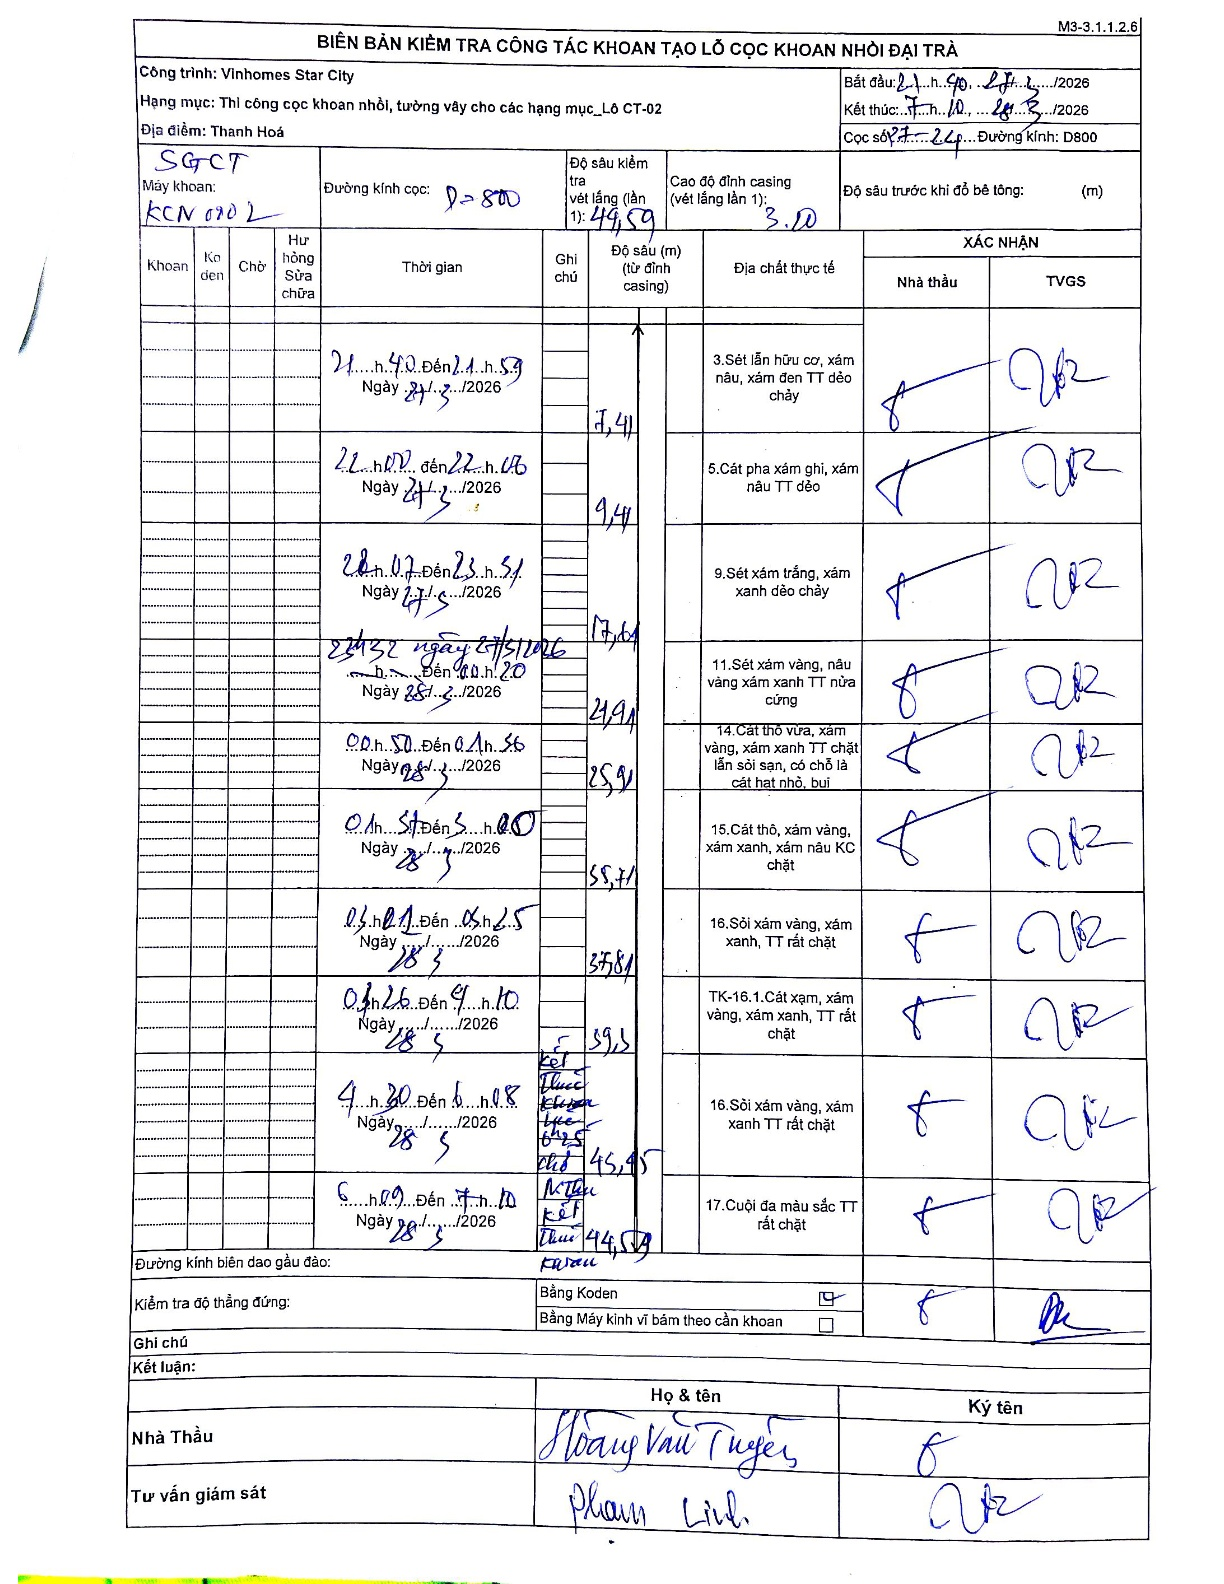 M3-3.1.1.2.6
BIÊN BẢN KIỂM TRA CÔNG TÁC KHOAN TẠO LỖ CỌC KHOAN NHỒI ĐẠI TRÀ
Công trình: Vinhomes Star City
Hạng mục: Thi công cọc khoan nhồi, tường vây cho các hạng mục_Lô CT-02
Địa điểm: Thanh Hoá
Bắt đầu: 21.h.40, 27/3/2026
Kết thúc: 7.h.10, 28/3/2026
Cọc số: 27-24 Đường kính: D800
SGCT
Máy khoan:
KCN 0902
Đường kính cọc: D=800
Độ sâu kiểm tra vét lắng (lần 1): 49,59
Cao độ đỉnh casing (vét lắng lần 1): 3.10
Độ sâu trước khi đổ bê tông: (m)
Khoan
Ko den
Chờ
Hư hỏng Sửa chữa
Thời gian
Ghi chú
Độ sâu (m) (từ đỉnh casing)
Địa chất thực tế
XÁC NHẬN
Nhà thầu
TVGS
21 h.40 Đến 21.h.59
Ngày 27/3/2026
7,41
3.Sét lẫn hữu cơ, xám nâu, xám đen TT dẻo chảy
22 h00 đến 22.h.06
Ngày 27/3/2026
9,41
5.Cát pha xám ghi, xám nâu TT dẻo
h.07 Đến 23.h.31
Ngày 27/3/2026
17,61
9.Sét xám trắng, xám xanh dẻo chảy
23h32 ngày 27/3/2026
h Đến 00.h.20
Ngày 28/3/2026
21,91
11.Sét xám vàng, nâu vàng xám xanh TT nửa cứng
00.h.50 Đến 01h.56
Ngày 28/3/2026
25,91
14.Cát thô vừa, xám vàng, xám xanh TT chặt lẫn sỏi sạn, có chỗ là cát hạt nhỏ, bụi
01h.57 Đến 3 h.00
Ngày 28/3/2026
35,71
15.Cát thô, xám vàng, xám xanh, xám nâu KC chặt
03.h01 Đến 03.h25
Ngày 28/3/2026
37,81
16.Sỏi xám vàng, xám xanh, TT rất chặt
03h26 Đến 4 h.10
Ngày 28/3/2026
39,3
TK-16.1.Cát xạm, xám vàng, xám xanh, TT rất chặt
4 h.30 Đến 6 h.08
Ngày 28/3/2026
Kết thúc khoan lúc 6h25 chờ N.Thu
16.Sỏi xám vàng, xám xanh TT rất chặt
6 h.09 Đến 7 h.10
Ngày 28/3/2026
Kết thúc khoan
44,59
17.Cuội đa màu sắc TT rất chặt
Đường kính biên dao gầu đào:
Kiểm tra độ thẳng đứng:
Bằng Koden
Bằng Máy kinh vĩ bám theo cần khoan
Ghi chú
Kết luận:
Họ & tên
Ký tên
Nhà Thầu
Hoàng Văn Tuyên
Tư vấn giám sát
Phạm Linh